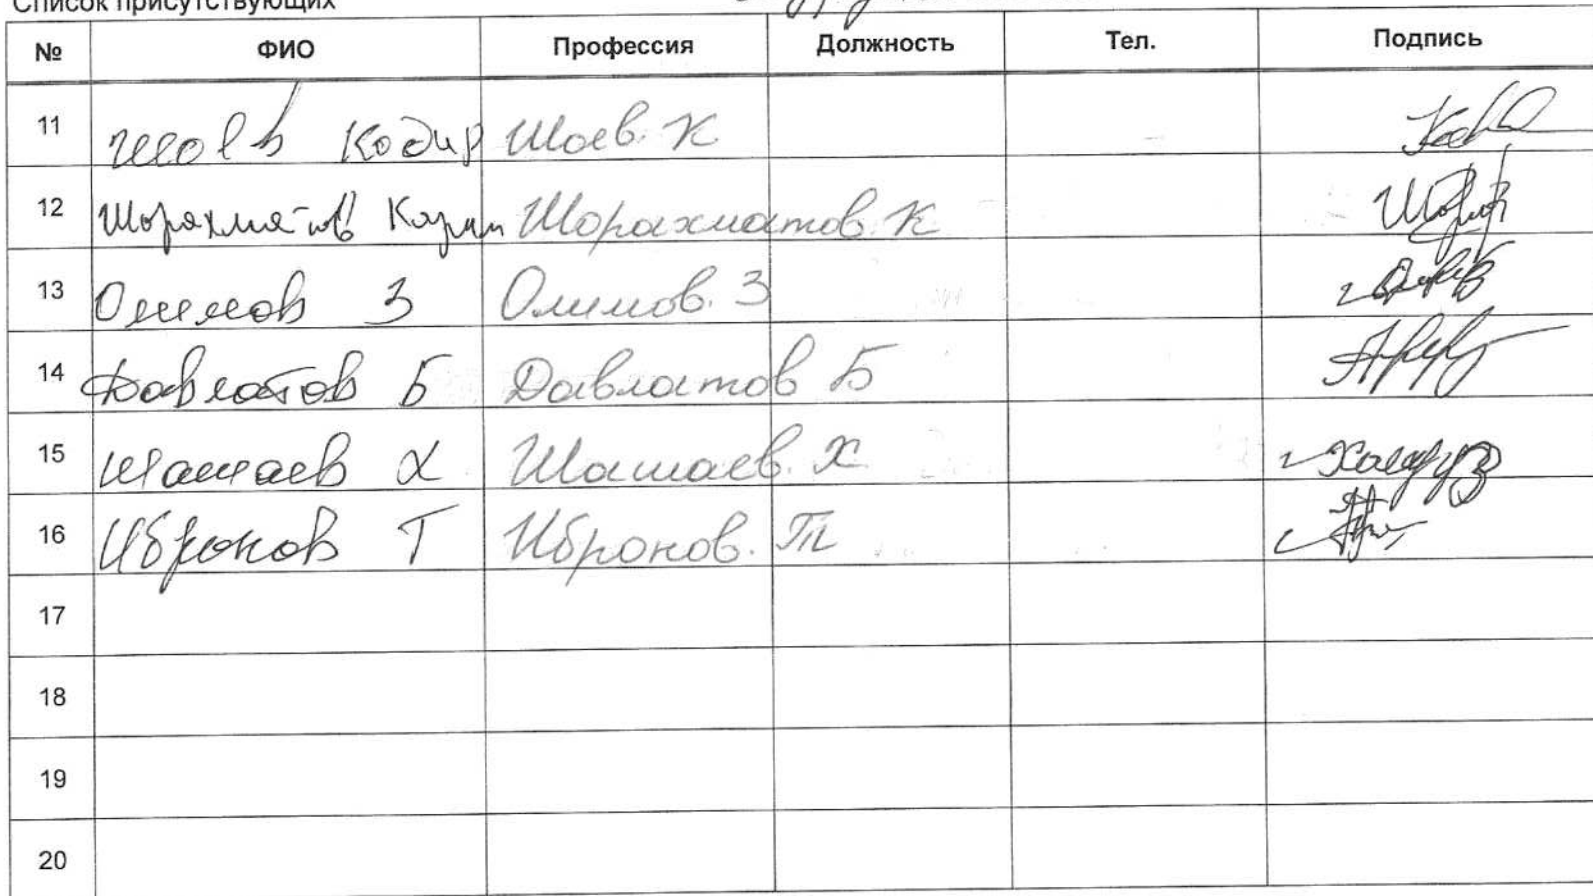 Список присутствующих
№ ФИО Профессия Должность Тел. Подпись
11 Шоев Кодир Шоев. К
12 Шорахматов Карим Шорахматов. К
13 Олимов З Олимов. З
14 Давлатов Б Давлатов Б
15 Шамаев Х Шамаев. Х
16 Иброков Т Иброков. Т
17
18
19
20